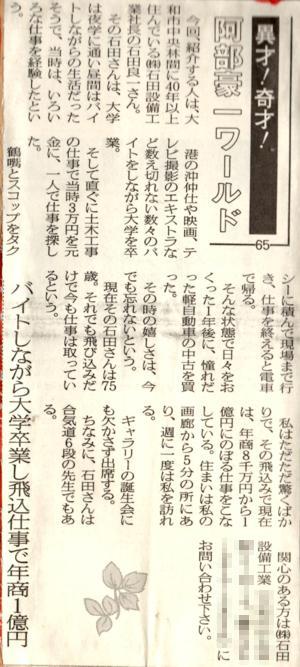 異才!奇才!
阿部豪一ワールド
65
バイトしながら大学卒業し飛込仕事で年商1億円
今回、紹介する人は、大
和市中央林間に40年以上
住んでいる㈱石田設備工
業社長の石田良一さん。
その石田さんは、大学
は夜学に通い昼間はバイ
トしながらの生活だった
そうで、当時は、いろい
ろな仕事を経験したとい
う。
港の沖仲仕や映画、テ
レビ撮影のエキストラな
ど数え切れない数々のバ
イトをしながら大学を卒
業。
そして直ぐに土木工事
の仕事で当時3万円を元
金に、一人で仕事を探し
た。
鶴嘴とスコップをタク
シーに積んで現場まで行
き、仕事を終えると電車
で帰る。
そんな状態で日々をお
くった1年後に、憧れだ
った軽自動車の中古を買
った。
その時の嬉しさは、今
でも忘れないという。
現在その石田さんは75
歳。それでも飛び込みだ
けで今も仕事は取ってい
るという。
私はただただ驚くばか
りで、その飛込みで現在
は、年商8千万円から1
億円にのぼる仕事をこな
している。住まいは私の
画廊から5分の所にあ
り、週に一度は私を訪れ
る。
ギャラリーの誕生会に
も欠かさず出席する。
ちなみに、石田さんは
合気道6段の先生でもあ
る。
関心のある方は㈱石田
設備工業
に
お問い合わせ下さい。